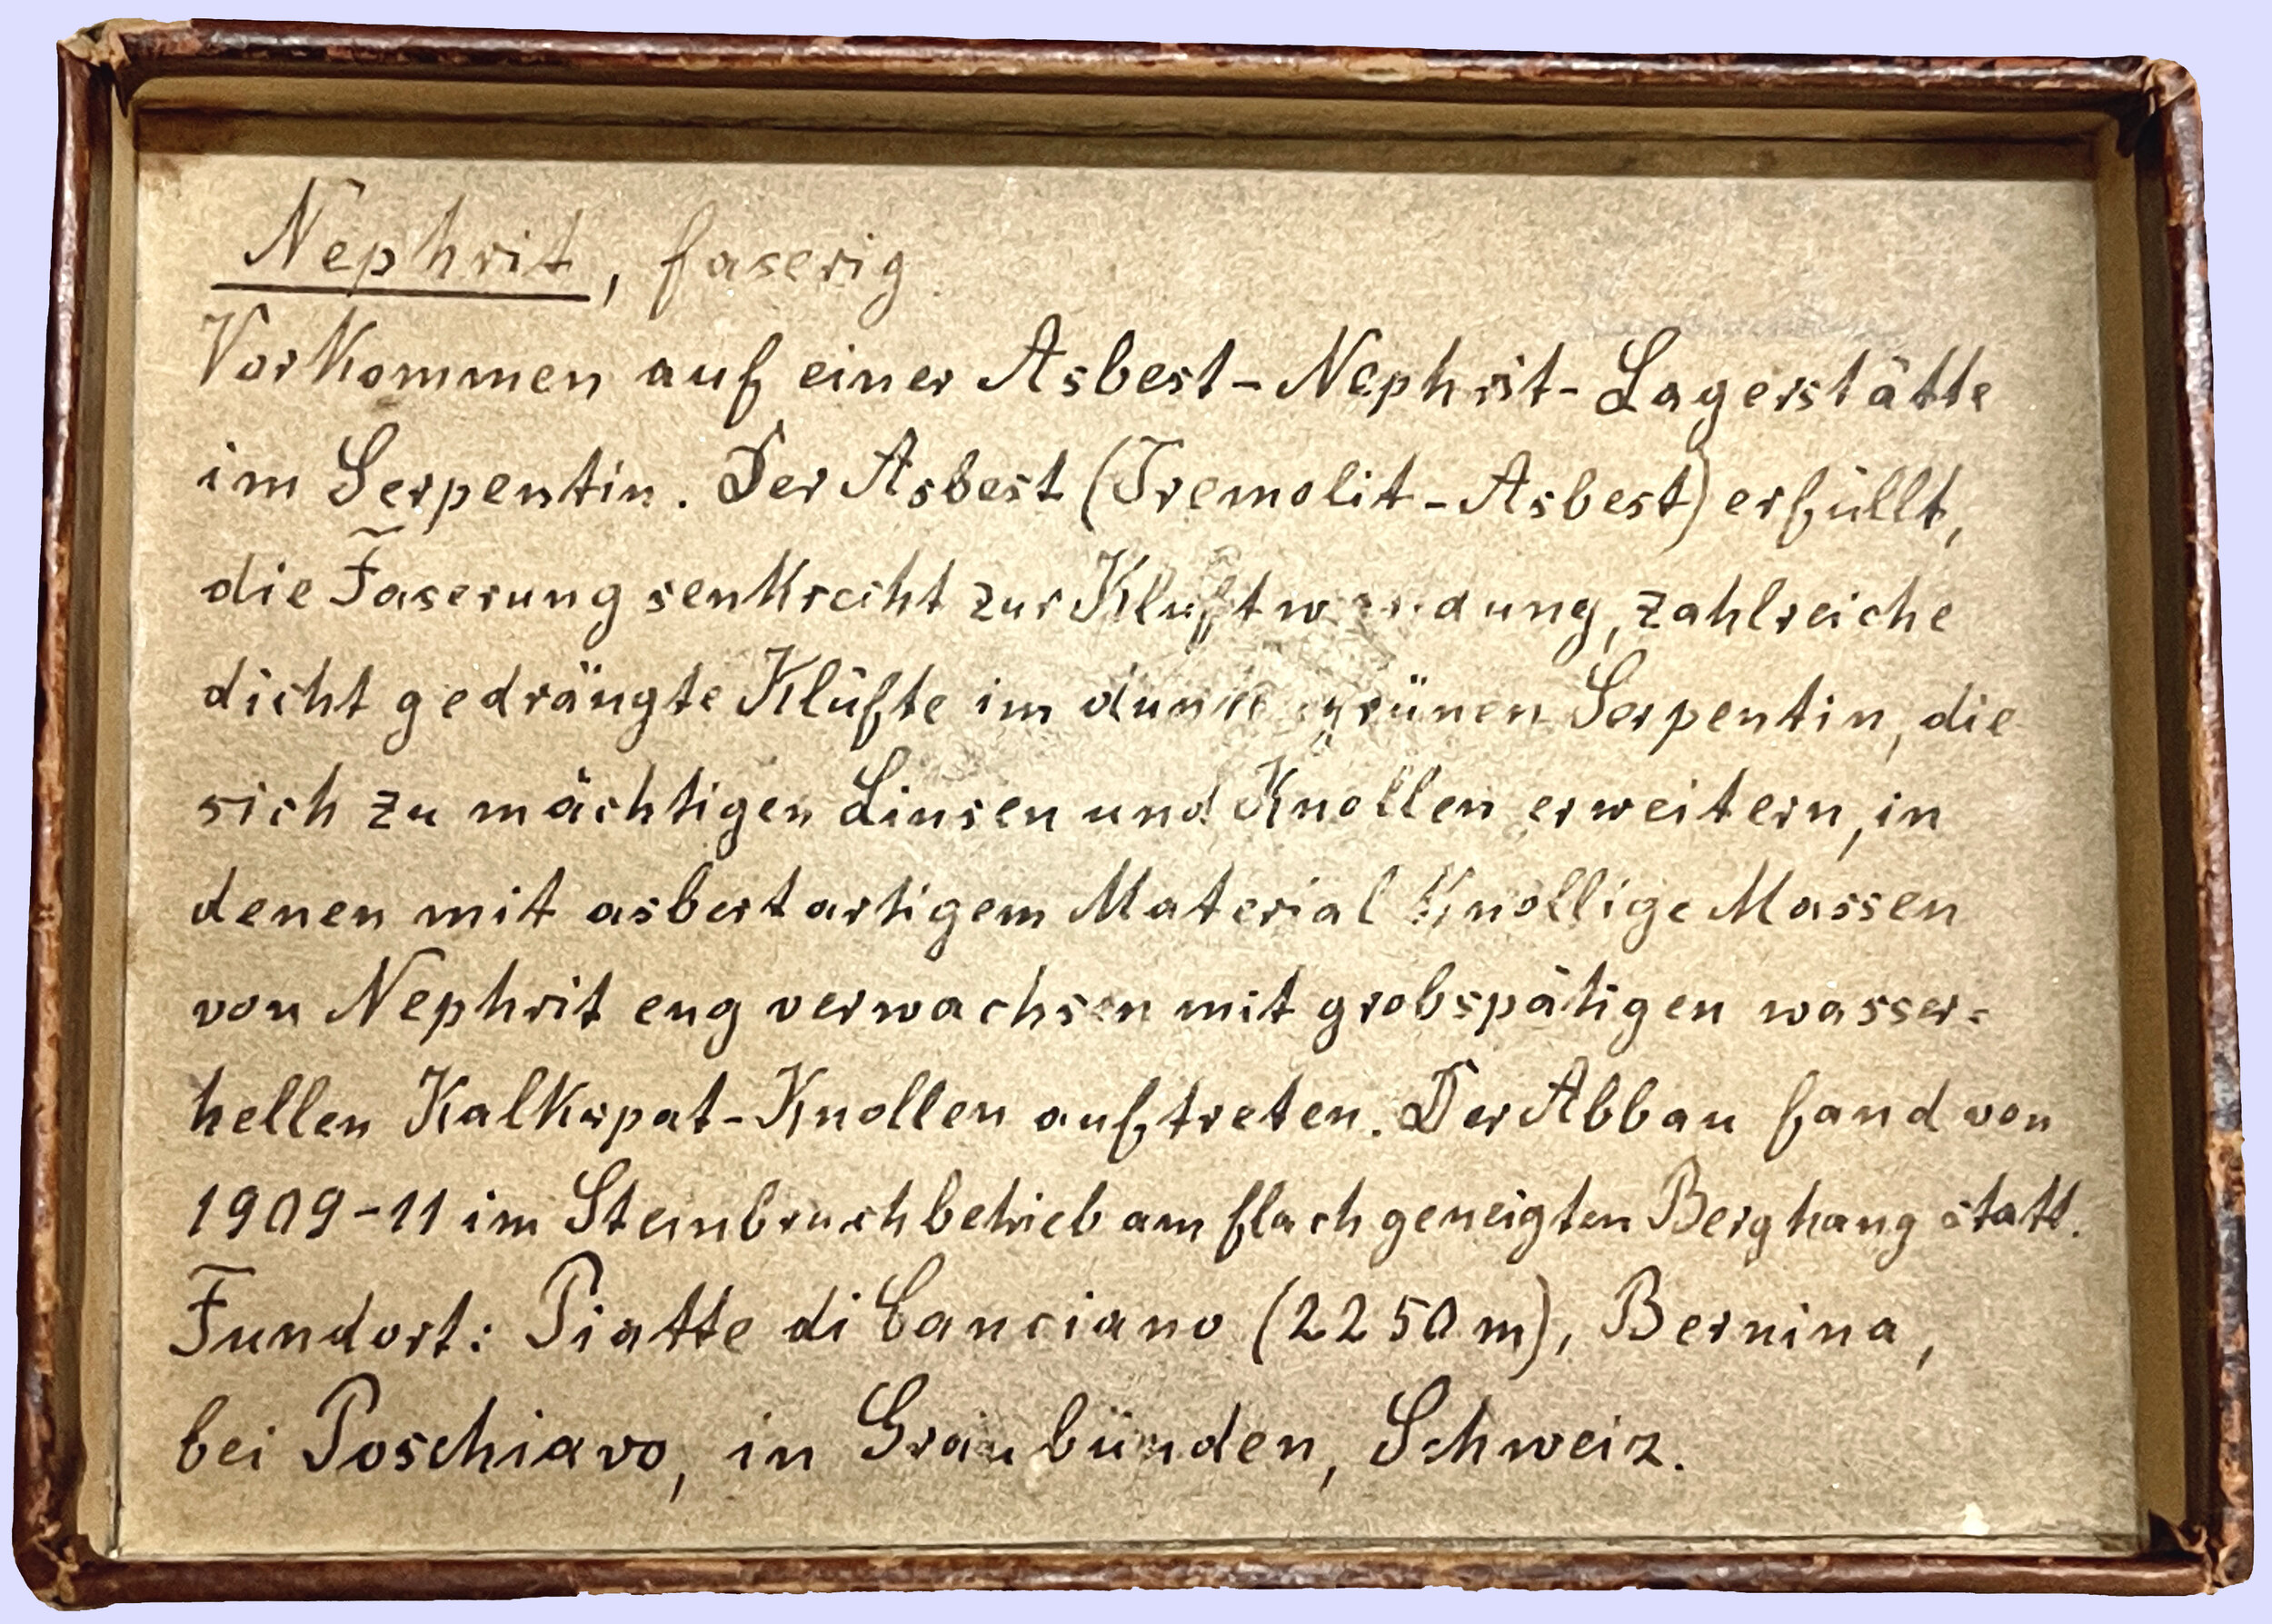 Nephrit, faserig
Vorkommen auf einer Asbest-Nephrit-Lagerstätte
im Serpentin. Der Asbest (Tremolit-Asbest) erfüllt,
die Faserung senkrecht zur Kluftwandung, zahlreiche
dicht gedrängte Klüfte im dunkelgrünen Serpentin, die
sich zu mächtigen Linsen und Knollen erweitern, in
denen mit asbestartigem Material Knollige Massen
von Nephrit eng verwachsen mit grobspätigen wasser-
hellen Kalkspat-Knollen auftreten. Der Abbau fand von
1909-11 im Steinbruchbetrieb am flach geneigten Berghang statt.
Fundort: Piatte di Canciano (2250 m), Bernina,
bei Poschiavo, in Graubünden, Schweiz.